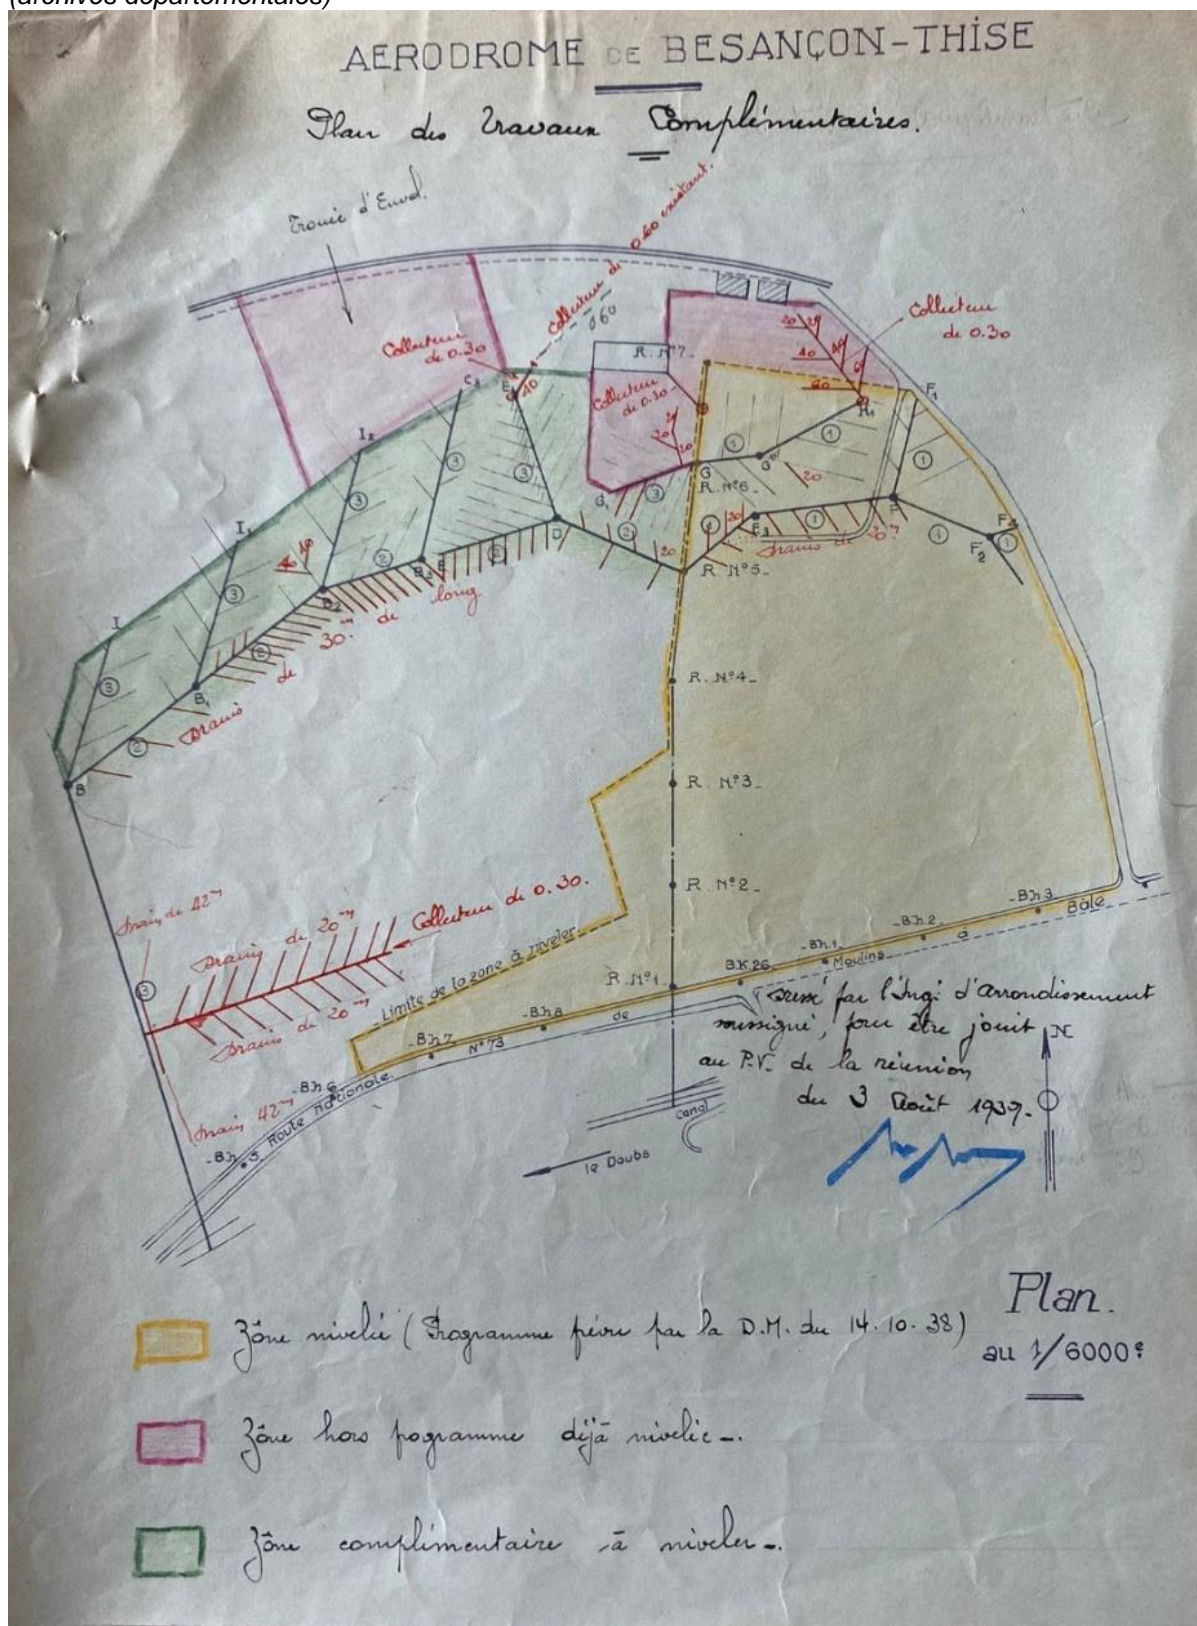 (archives départementales)
AERODROME DE BESANÇON-THISE
Plan des Travaux Complémentaires.
Trouée d'Envol.
Collecteur de 0.60 existant.
060
Collecteur
de 0.30
Collecteur
de 0.30
R. N°7_
Collecteur
de 0.30
20
20
40
40
60
60
F1
C3
E1
40
H1
I2
20
20
20
G
G"
20
R. N°6_
G1
I1
40
D
20
20
E3
F
F2
F4
Drains de 30m
R. N°5_
B3
E
B2
Drains de 30m de long
I
B1
B
1
2
3
R. N°4_
R. N°3_
R. N°2_
R. N°1_
Drain de 42m
Drains de 20m
Collecteur de 0.30.
Drains de 20m
Drain 42m
Limite de la zone à niveler
-B.h.3_
-B.h.2_
-B.h.1_
B.K.26_
-B.h.8
-B.h.7
-B.h.6
-B.h.5
Route Nationale N°73 de Moulins à Bâle
Canal
le Doubs
Dressé par l'Ingr d'arrondissement
soussigné, pour être joint
au P.V. de la réunion
du 3 Août 1939.
N
Plan.
au 1/6000e
Zône nivelée (Programme prévu par la D.M. du 14.10.38)
Zône hors pogramme déjà nivelée_.
Zône complémentaire à niveler_.